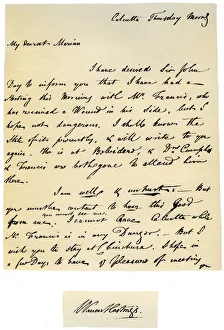 Calcutta Thursday Morng
My dearest Marian
I have desired Sir John
Day to inform you that I have had a
Meeting this Morning with Mr. Francis, who
has received a Wound in his Side, but I
hope not dangerous. I shall know the
State of it presently, & will write to you
again. He is at Belvidere, & Dr. Campbell
& Francis are both gone to attend him
there.
I am well & unhurt. — But
you must be content to hear this Good
from me. you must not come I cannot leave Calcutta while
Mr. Francis is in any Danger. But I
wish you to stay at Chinchura. I hope in
a few Days to have ye Pleasure of meeting you
Warren Hastings